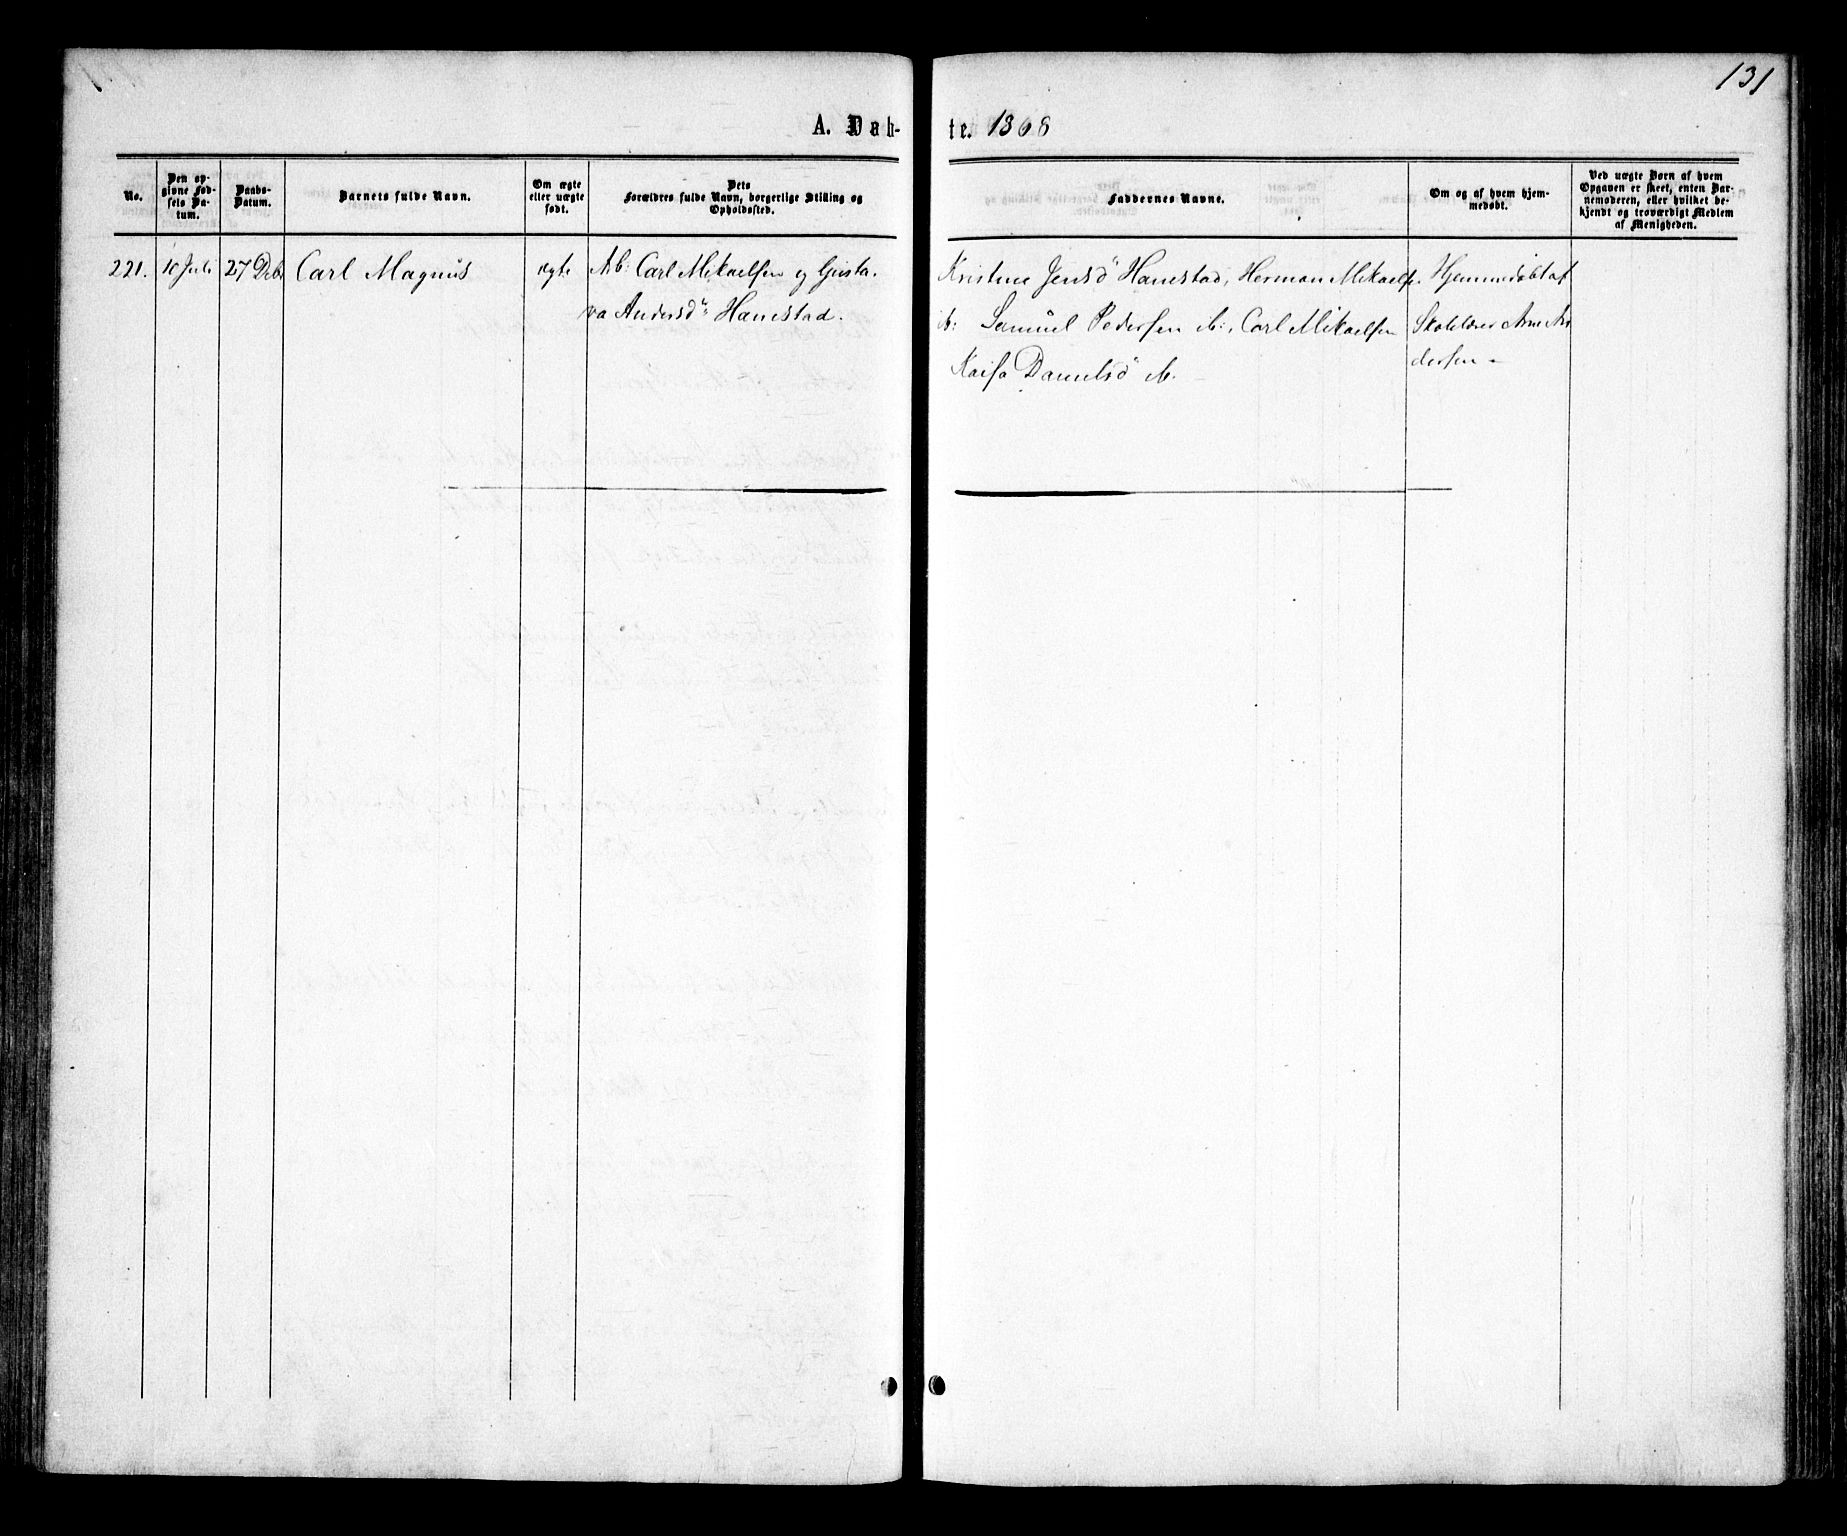 131
A. Døb- te. 1868
No.
Den op-
givne Fød-
sels Da-
tum.
Daabs-
Datum.
Barnets fulde Navn.
Om ægte
eller uægte
født.
Dets
Forældres fulde Navn, borgerlige Stilling og
Opholdssted.
Faddernes Navne.
Om og af hvem hjem-
medøbt.
Ved uægte Børn af hvem
Opgaven er skeet, enten Bar-
nemoderen, eller hvilket be-
kjendt og troværdigt Medlem
af Menigheden.
221. 10 Juli 27 Debr Carl Magnus ægte Arb: Carl Mikaelsen og Gusta-
va Andersd" Hanestad.
Kristine Jensd" Hanestad, Herman Mikaels.
ib: Samuel Pedersen ib:, Carl Mikaelsen
Kaisa Danielsd" ib.
Hjemmedøbt af
Skolelærer Arne An
dersen -